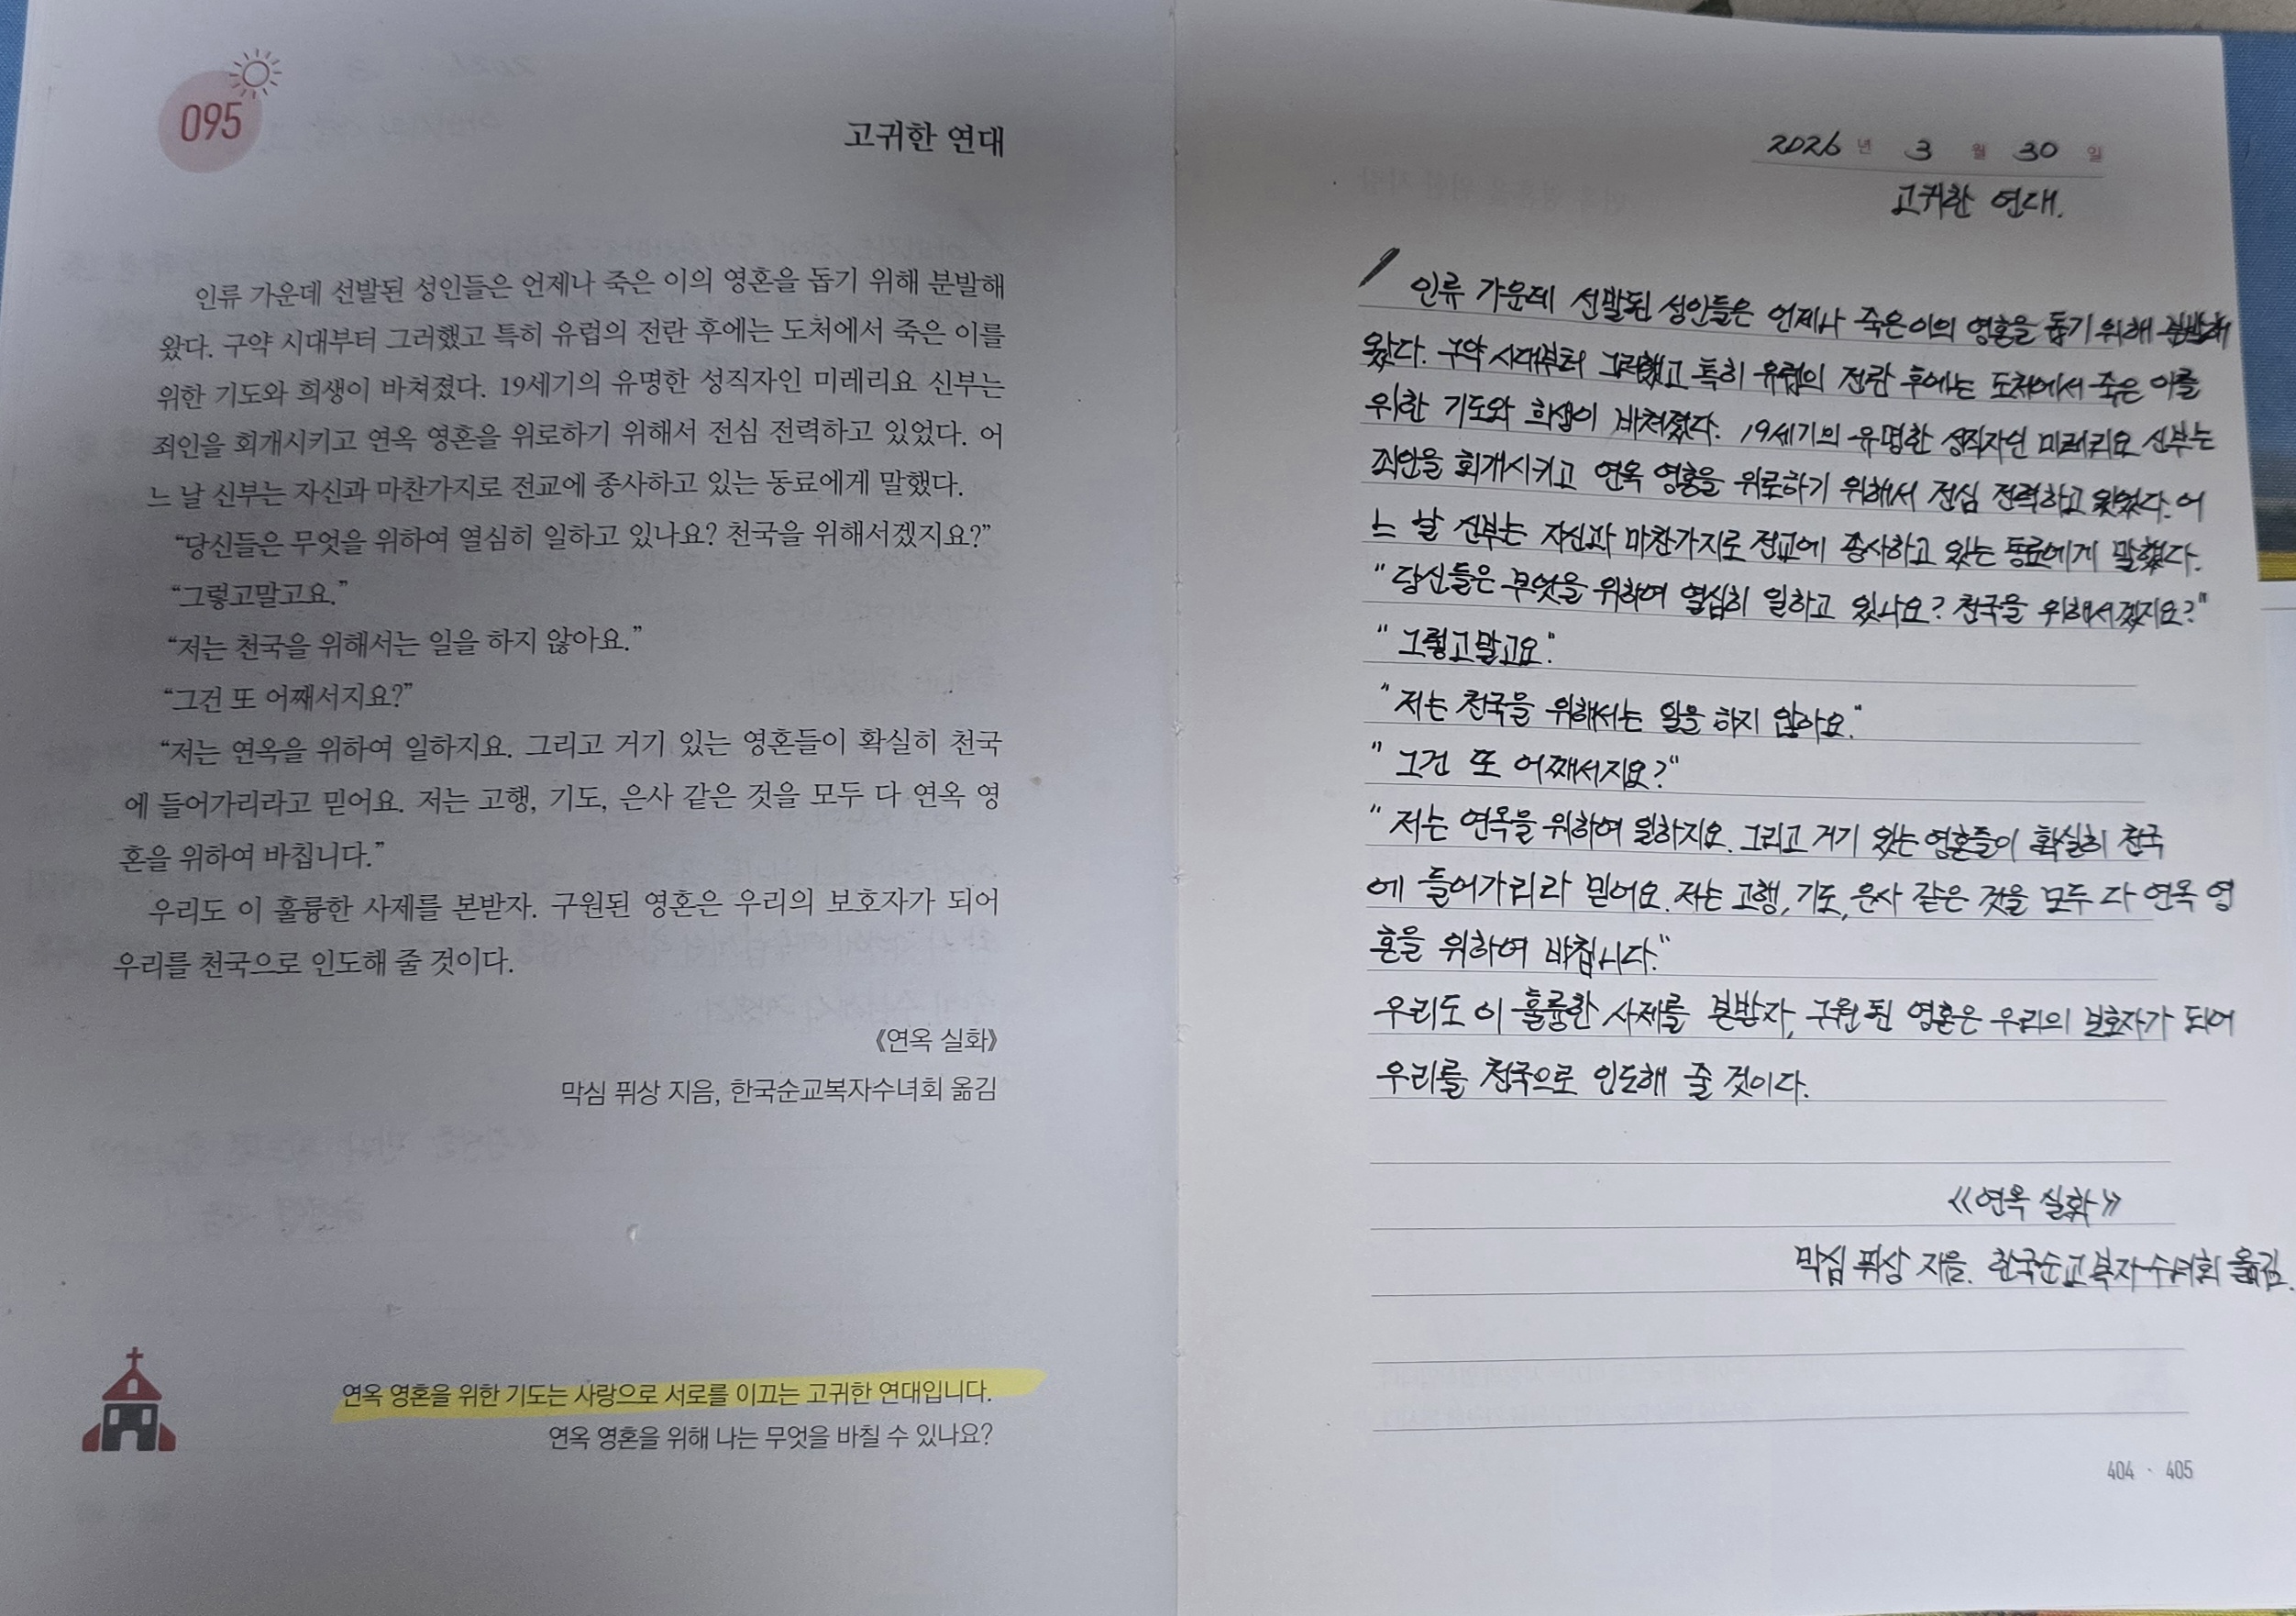 095
고귀한 연대
인류 가운데 선발된 성인들은 언제나 죽은 이의 영혼을 돕기 위해 분발해
왔다. 구약 시대부터 그러했고 특히 유럽의 전란 후에는 도처에서 죽은 이를
위한 기도와 희생이 바쳐졌다. 19세기의 유명한 성직자인 미레리요 신부는
죄인을 회개시키고 연옥 영혼을 위로하기 위해서 전심 전력하고 있었다. 어
느 날 신부는 자신과 마찬가지로 전교에 종사하고 있는 동료에게 말했다.
“당신들은 무엇을 위하여 열심히 일하고 있나요? 천국을 위해서겠지요?”
“그렇고말고요.”
“저는 천국을 위해서는 일을 하지 않아요.”
“그건 또 어째서지요?”
“저는 연옥을 위하여 일하지요. 그리고 거기 있는 영혼들이 확실히 천국
에 들어가리라고 믿어요. 저는 고행, 기도, 은사 같은 것을 모두 다 연옥 영
혼을 위하여 바칩니다.”
우리도 이 훌륭한 사제를 본받자. 구원된 영혼은 우리의 보호자가 되어
우리를 천국으로 인도해 줄 것이다.
《연옥 실화》
막심 퓌상 지음, 한국순교복자수녀회 옮김
연옥 영혼을 위한 기도는 사랑으로 서로를 이끄는 고귀한 연대입니다.
연옥 영혼을 위해 나는 무엇을 바칠 수 있나요?
2026년 3월 30일
고귀한 연대.
인류 가운데 선발된 성인들은 언제나 죽은이의 영혼을 돕기 위해 분발해
왔다. 구약 시대부터 그러했고 특히 유럽의 전란 후에는 도처에서 죽은 이를
위한 기도와 희생이 바쳐졌다. 19세기의 유명한 성직자인 미레리요 신부는
죄인을 회개시키고 연옥 영혼을 위로하기 위해서 전심 전력하고 있었다. 어
느 날 신부는 자신과 마찬가지로 전교에 종사하고 있는 동료에게 말했다.
"당신들은 무엇을 위하여 열심히 일하고 있나요? 천국을 위해서겠지요?"
"그렇고말고요."
"저는 천국을 위해서는 일을 하지 않아요."
"그건 또 어째서지요?"
"저는 연옥을 위하여 일하지요. 그리고 거기 있는 영혼들이 확실히 천국
에 들어가리라 믿어요. 저는 고행, 기도, 은사 같은 것을 모두 다 연옥 영
혼을 위하여 바칩니다."
우리도 이 훌륭한 사제를 본받자, 구원된 영혼은 우리의 보호자가 되어
우리를 천국으로 인도해 줄 것이다.
《연옥 실화》
막심 퓌상 지음. 한국순교복자수녀회 옮김.
404 · 405